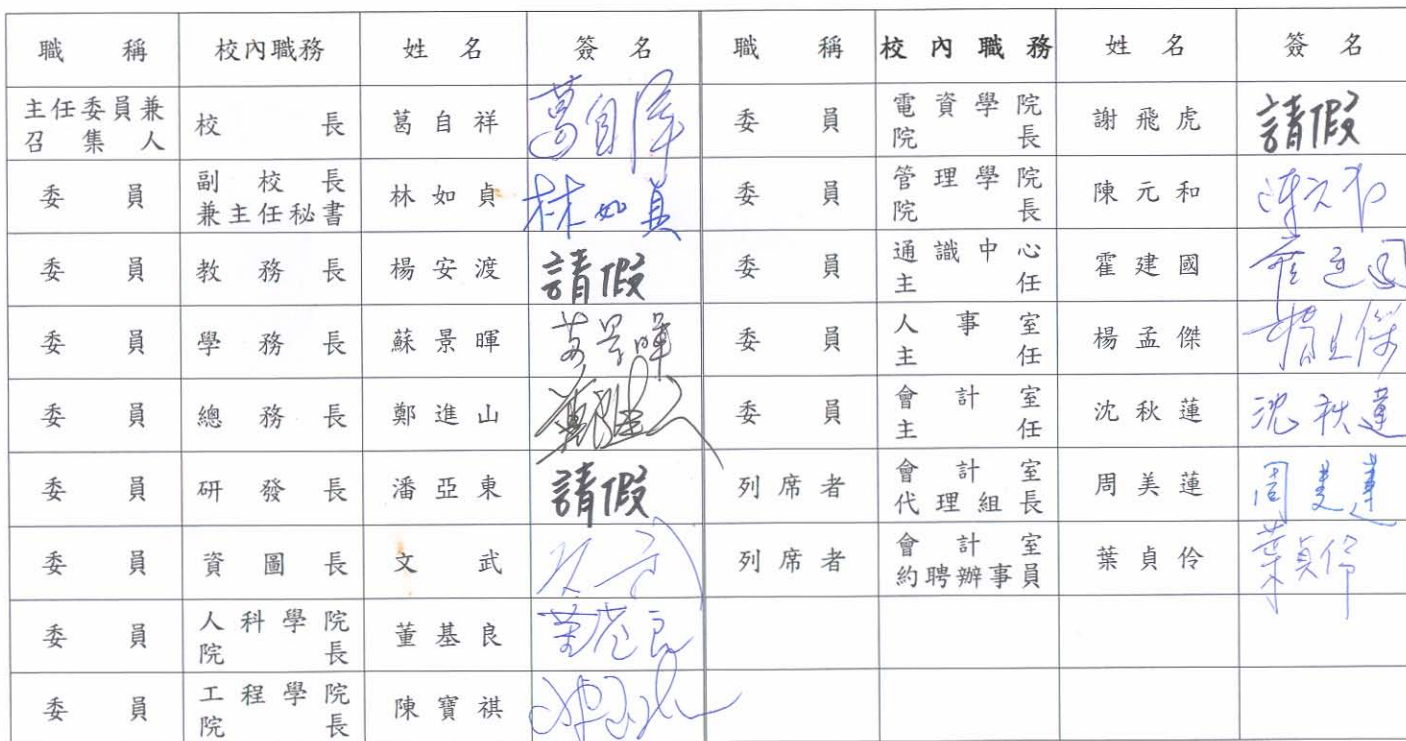 職稱 校內職務 姓名 簽名 職稱 校內職務 姓名 簽名
主任委員兼召集人 校長 葛自祥 葛自祥 委員 電資學院院長 謝飛虎 請假
委員 副校長兼主任秘書 林如貞 林如貞 委員 管理學院院長 陳元和 陳元和
委員 教務長 楊安渡 請假 委員 通識中心主任 霍建國 霍建國
委員 學務長 蘇景暉 蘇景暉 委員 人事室主任 楊孟傑 楊孟傑
委員 總務長 鄭進山 鄭進山 委員 會計室主任 沈秋蓮 沈秋蓮
委員 研發長 潘亞東 請假 列席者 會計室代理組長 周美蓮 周美蓮
委員 資圖長 文武 文武 列席者 會計室約聘辦事員 葉貞伶 葉貞伶
委員 人科學院院長 董基良 董基良
委員 工程學院院長 陳寶祺